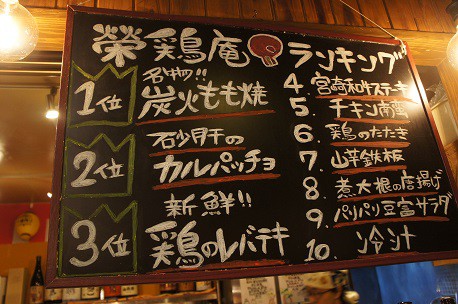 榮鶏庵ランキング
1位
名物!!
炭火もも焼
2位
砂肝の
カルパッチョ
3位
新鮮!!
鶏のレバテキ
4. 宮崎和牛ステーキ
5. チキン南蛮
6. 鶏のたたき
7. 山芋鉄板
8. 煮大根の唐揚げ
9. パリパリ豆富サラダ
10. 冷汁